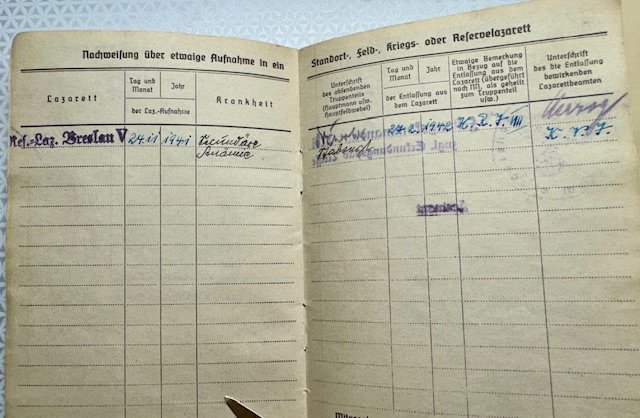 Nachweisung über etwaige Aufnahme in ein
Lazarett
Tag und
Monat
Jahr
der Laz.-Aufnahme
Krankheit
Res.-Laz. Breslau V
24.11
1941
Secundäre
Anämie
Standort-, Feld-, Kriegs- oder Reservelazarett
Unterschrift
des absendenden
Truppenteils
(Hauptmann usw.
Hauptfeldwebel)
Tag und
Monat
Jahr
der Entlassung aus
dem Lazarett
Etwaige Bemerkung
in Bezug auf die
Entlassung aus dem
Lazarett (übergeführt
nach NN, als geheilt
zum Truppenteil
usw.)
Unterschrift
des die Entlassung
bewirkenden
Lazarettbeamten
24.2.
1942